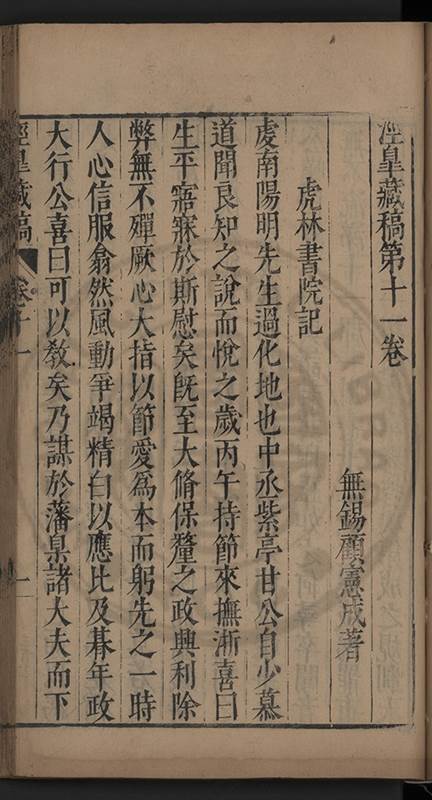 涇皐藏稿第十一卷
無錫顧憲成著
虎林書院記
虔南陽明先生過化地也中丞紫亭甘公自少慕
道聞良知之說而悅之歲丙午持節來撫淛喜曰
生平寤寐於斯慰矣旣至大脩保釐之政興利除
弊無不殫厥心大指以節愛爲本而躬先之一時
人心信服翕然風動爭竭精白以應比及朞年政
大行公喜曰可以敎矣乃謀於藩臬諸大夫而下
涇皐藏稿
卷十一
一